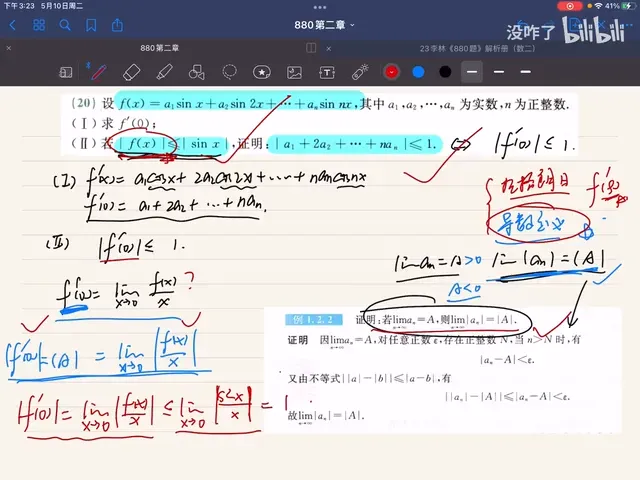 下午3:23 5月10日周二
41%
880 第二章
没咋了 bilibili
880 第二章
23李林《880题》解析册(数二)
(20) 设 f(x)=a₁sin x+a₂sin 2x+⋯+aₙsin nx,其中 a₁,a₂,⋯,aₙ 为实数,n 为正整数.
(Ⅰ) 求 f′(0);
(Ⅱ) 若 |f(x)|≤|sin x|,证明:|a₁+2a₂+⋯+naₙ|≤1. ⇔ |f′(0)|≤1.
(Ⅰ) f′(x)=a₁cosx+2a₂cos2x+⋯+naₙcosnx
f′(0)=a₁+2a₂+⋯+naₙ.
(Ⅱ)
|f′(0)|≤1.
f′(0)=lim x→0 f(x)/x ?
|f′(0)|=|A|=lim x→0 |f(x)/x|
|f′(0)|=lim x→0 |f(x)/x|≤lim x→0 |sinx/x|=1.
f′(0)
导数定义
lim aₙ=A>0
A<0
lim |aₙ|=|A|
例 1.2.2 证明:若lim n→∞ aₙ=A,则lim n→∞ |aₙ|=|A|.
证明 因lim n→∞ aₙ=A,对任意正数ε,存在正整数 N,当 n>N 时,有
|aₙ-A|<ε.
又由不等式||a|-|b||≤|a-b|,有
||aₙ|-|A||≤|aₙ-A|<ε.
故lim n→∞ |aₙ|=|A|.